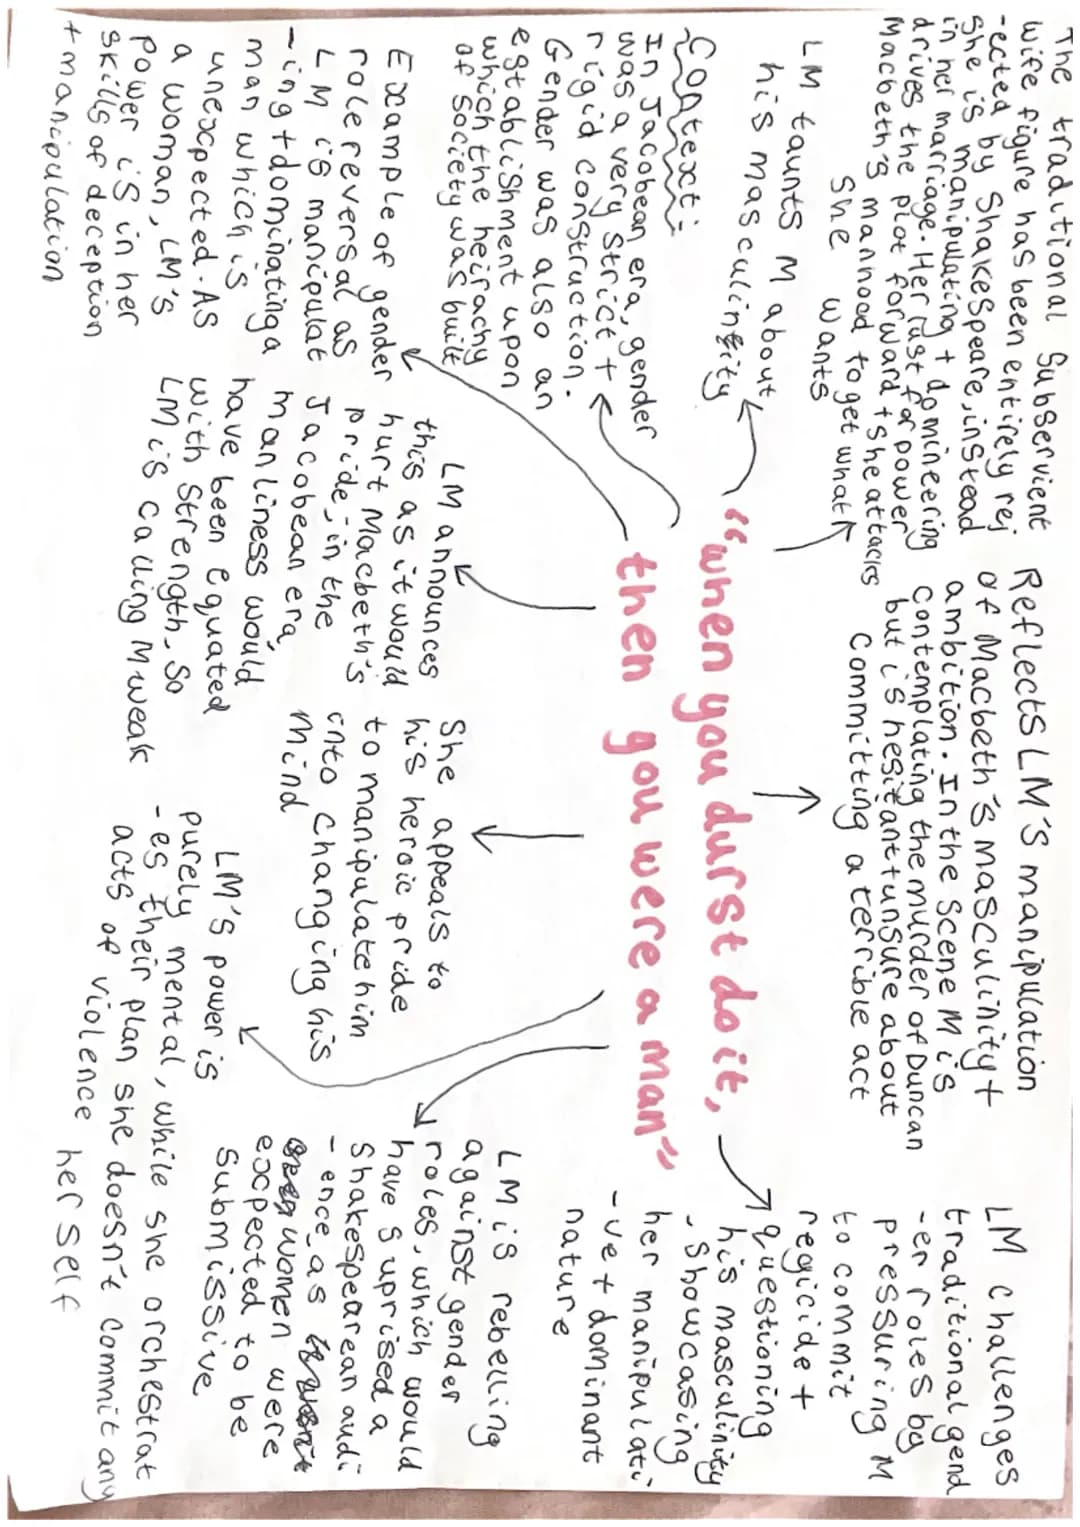 The traditional subservient
wife figure has been entirely rej
-ected by Shakespeare, instead
she is manipulating + domineering
in her marriage. Her lust for power
drives the plot forward + she attacks
Macbeth's manhood to get what
she wants
Reflects LM's manipulation
of Macbeth's masculinity +
ambition. In the scene M is
contemplating the murder of Duncan
but is hesitant + unsure about
committing a terrible act
LM challenges
traditional gend
-er roles by
pressuring M
to commit
regicide +
questioning
his masculinity
- Showcasing
her manipulati
-ve + dominant
nature
LM taunts M about
his masculinity
"when you durst do it,
then you were a man"
Context:
In Jacobean era, gender
was a very strict +
rigid construction.
Gender was also an
egtablishment upon
which the heirachy
of society was built
Example of gender
role reversal as
LM is manipulat
-ing + dominating a
man which is
unexpected. As
a woman, LM's
power is in her
skills of deception
+ manipulation
LM announces
this as it would
hurt Macbeth's
pride, in the
Jacobean era,
manliness would
have been equated
with strength, so
LM is calling M weak
She appeals to
his heroic pride
to manipulate him
into changing his
mind
LM's power is
purely mental, while she orchestrat
-es their plan she doesn't commit any
acts of violence herself
LM is rebelling
against gender
roles, which would
have suprised a
Shakespearean audi
-ence as
women were
expected to be
submissive